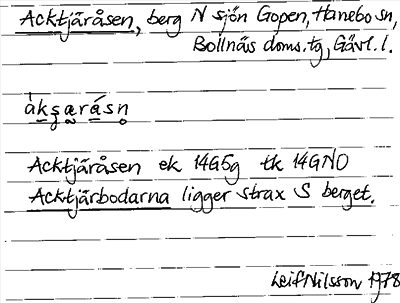 Acktjäråsen, berg N sjön Gopen, Hanebo sn,
Bollnäs doms.tg, Gävl. l.
Acktjäråsen ek 14G5g tk 14GNO
Acktjärbodarna ligger strax S berget.
Leif Nilsson 1978